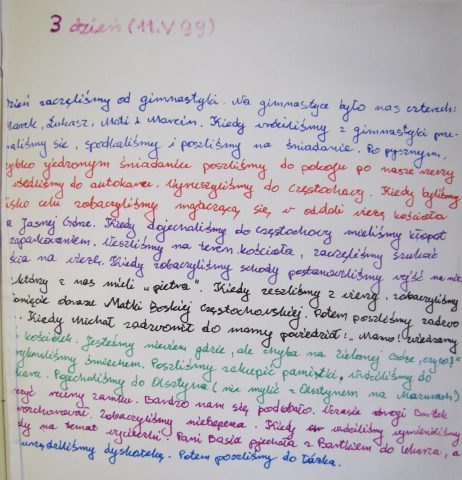 3 dzień (11.V.99)
Dzień zaczęliśmy od gimnastyki. Na gimnastyce było nas czterech:
Marek, Łukasz, Mati i Marcin. Kiedy wróciliśmy z gimnastyki prze-
braliśmy się, spotkaliśmy i poszliśmy na śniadanie. Po pysznym,
szybko zjedzonym śniadaniu poszliśmy do pokoju po nasze rzeczy
wsiedliśmy do autokaru. Wyruszyliśmy do Częstochowy. Kiedy byliśmy
blisko celu zobaczyliśmy majaczącą się, w oddali wieżę kościoła
a Jasnej Górze. Kiedy dojechaliśmy do Częstochowy mieliśmy kłopot
zaparkowaniem. Weszliśmy na teren kościoła, zaczęliśmy szukać
ścia na wieżę. Kiedy zobaczyliśmy schody postanowiliśmy wejść na nie
którzy z nas mieli „pietra". Kiedy zeszliśmy z wieży, zobaczyliśmy
obraze Matki Boskiej Częstochowskiej. Potem poszliśmy zadzwo
. Kiedy Michał zadzwonił do mamy powiedział: „Mamo, zwiedzamy
kościółek. Jesteśmy niewiem gdzie, ale chyba na Zielonej Górze,
śmiechem. Poszliśmy zakupić pamiątki, wróciliśmy do
karu. Pojechaliśmy do Olsztyna (nie mylić z Olsztynem na Mazurach)
ruiny zamku. Bardzo nam się podobało. Czasie drogi Bartek
zachorował. Zobaczyliśmy nietoperza. Kiedy wróciliśmy wymieniliśmy
dy na temat wycieczki. Pani Basia pojechała z Bartkiem do lekarza, a
urządziliśmy dyskotekę. Potem poszliśmy do łóżka.